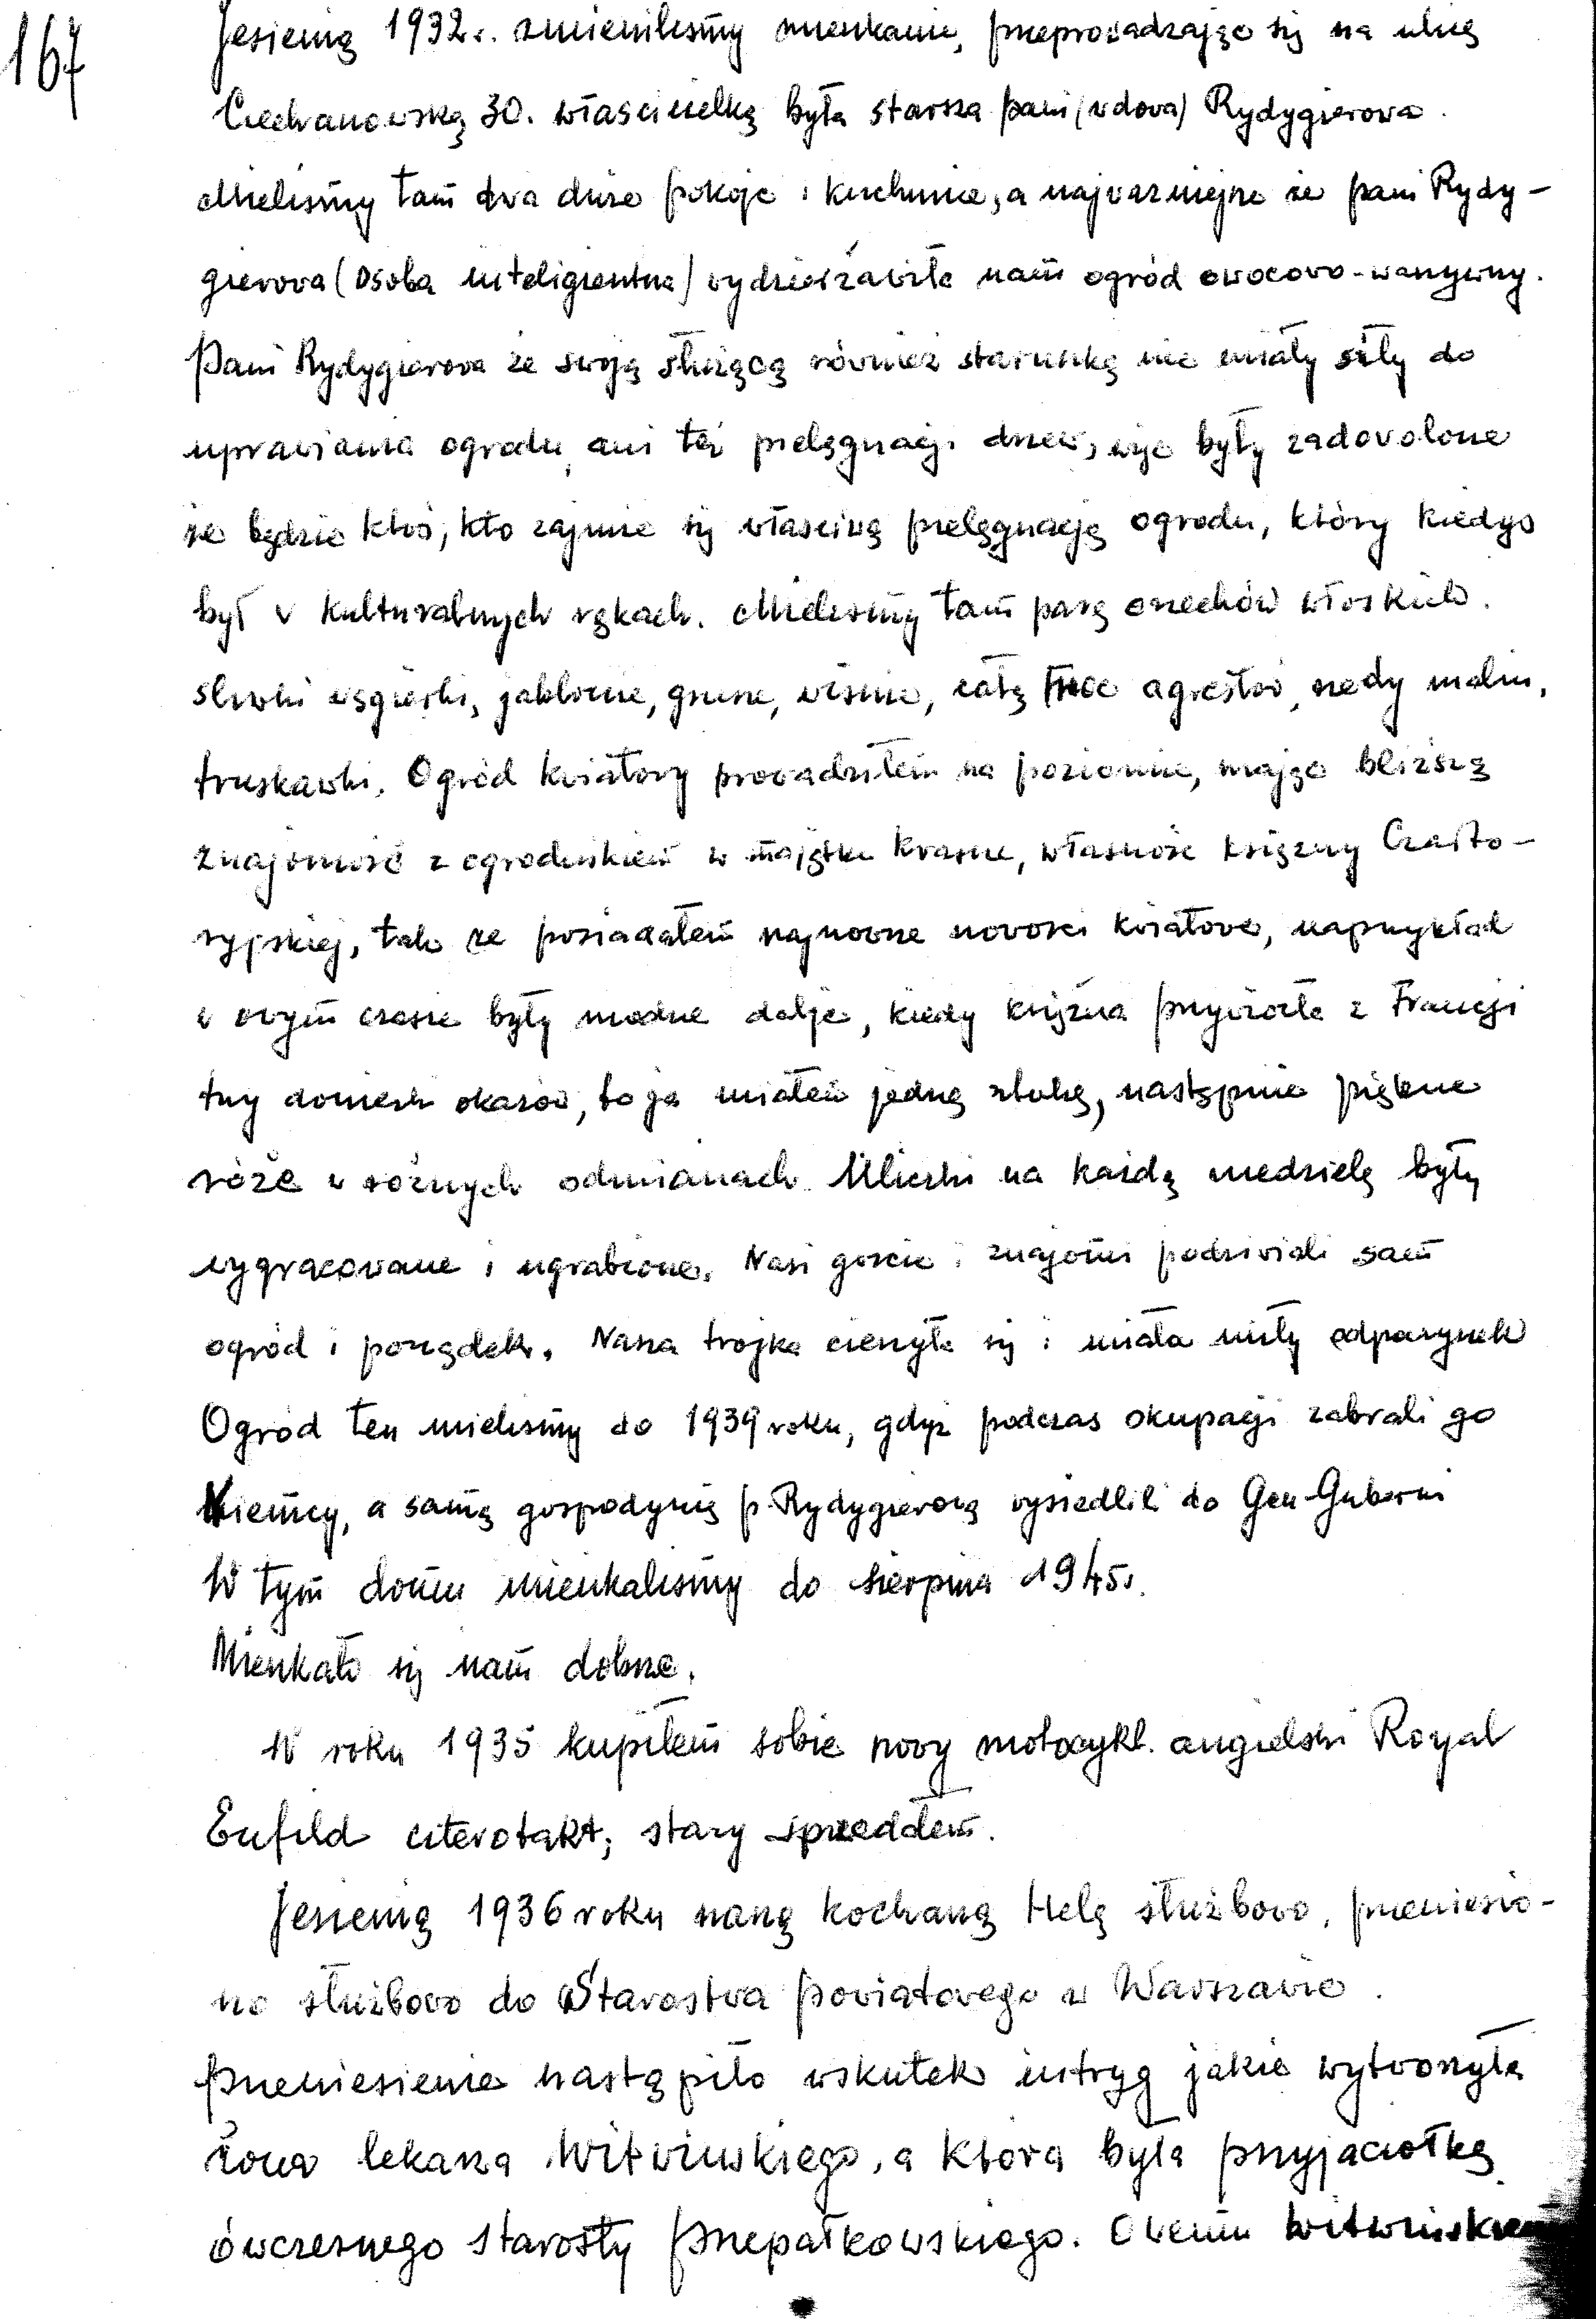 167
Jesienią 1932 r. zmieniliśmy mieszkanie, przeprowadzając się na ulicę
Ciechanowską 30. właścicielką była starsza pani (wdowa) Rydygierowa.
Mieliśmy tam dwa duże pokoje i kuchnię, a najważniejsze że pani Rydy-
gierowa (osoba inteligientna) wydzierżawiła nam ogród owocowo-warzywny.
Pani Rydygierowa ze swoją służącą również staruszką nie miały siły do
uprawiania ogrodu, ani też pielęgnacji drzew, więc były zadowolone
że będzie ktoś, kto zajmie się właściwą pielęgnacją ogrodu, który kiedyś
był w kulturalnych rękach. Mieliśmy tam parę orzechów włoskich.
śliwki węgierki, jabłonie, grusze, wiśnie, całą agrestów, rzędy malin,
truskawki. Ogród kwiatowy prowadziłem na poziomie, mając bliższą
znajomość z ogrodnikiem w majątku Krasne, własność księżny Czarto-
ryjskiej, tak że posiadałem najnowsze nowości kwiatowe, naprzykład
w owym czasie były modne dalje, kiedy księżna przywiozła z Francji
trzy domieszki okazów, to ja miałem jedną sztukę, następnie piękne
róże w różnych odmianach. Uliczki na każdą niedzielę były
wygracowane i ugrabione. Nasi goście i znajomi podziwiali sam
ogród i porządek. Nasza trójka cieszyła się i miała miły odpoczynek
Ogród ten mieliśmy do 1939 roku, gdyż podczas okupacji zabrali go
Niemcy, a samą gospodynię p. Rydygierową wysiedlili do Gen-Guberni
W tym domu mieszkaliśmy do sierpnia 1945 r.
Mieszkało się nam dobrze.
W roku 1935 kupiłem sobie nowy motocykl. angielski Royal
Enfild czterotakt; stary sprzedałem.
Jesienią 1936 roku naszą kochaną Helę służbowo, przeniesio-
no służbowo do Starostwa powiatowego w Warszawie.
Przeniesienie nastąpiło wskutek intryg jakie wytworzyła
żona lekarza Witwińskiego, a która była przyjaciółką
ówczesnego starosty Przepałkowskiego. Owemu